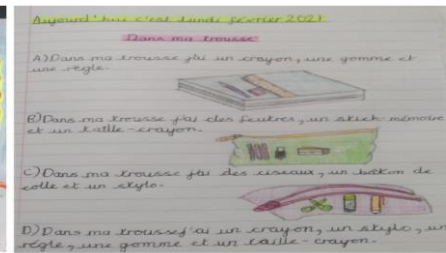 Aujourd'hui c'est lundi février 2021
Dans ma trousse
A) Dans ma trousse j'ai un crayon, une gomme et
une règle.
B) Dans ma trousse j'ai des feutres, un stick-mémoire
et un taille-crayon.
C) Dans ma trousse j'ai des ciseaux, un bâton de
colle et un stylo.
D) Dans ma trousse j'ai un crayon, un stylo, un
règle, une gomme et un taille-crayon.